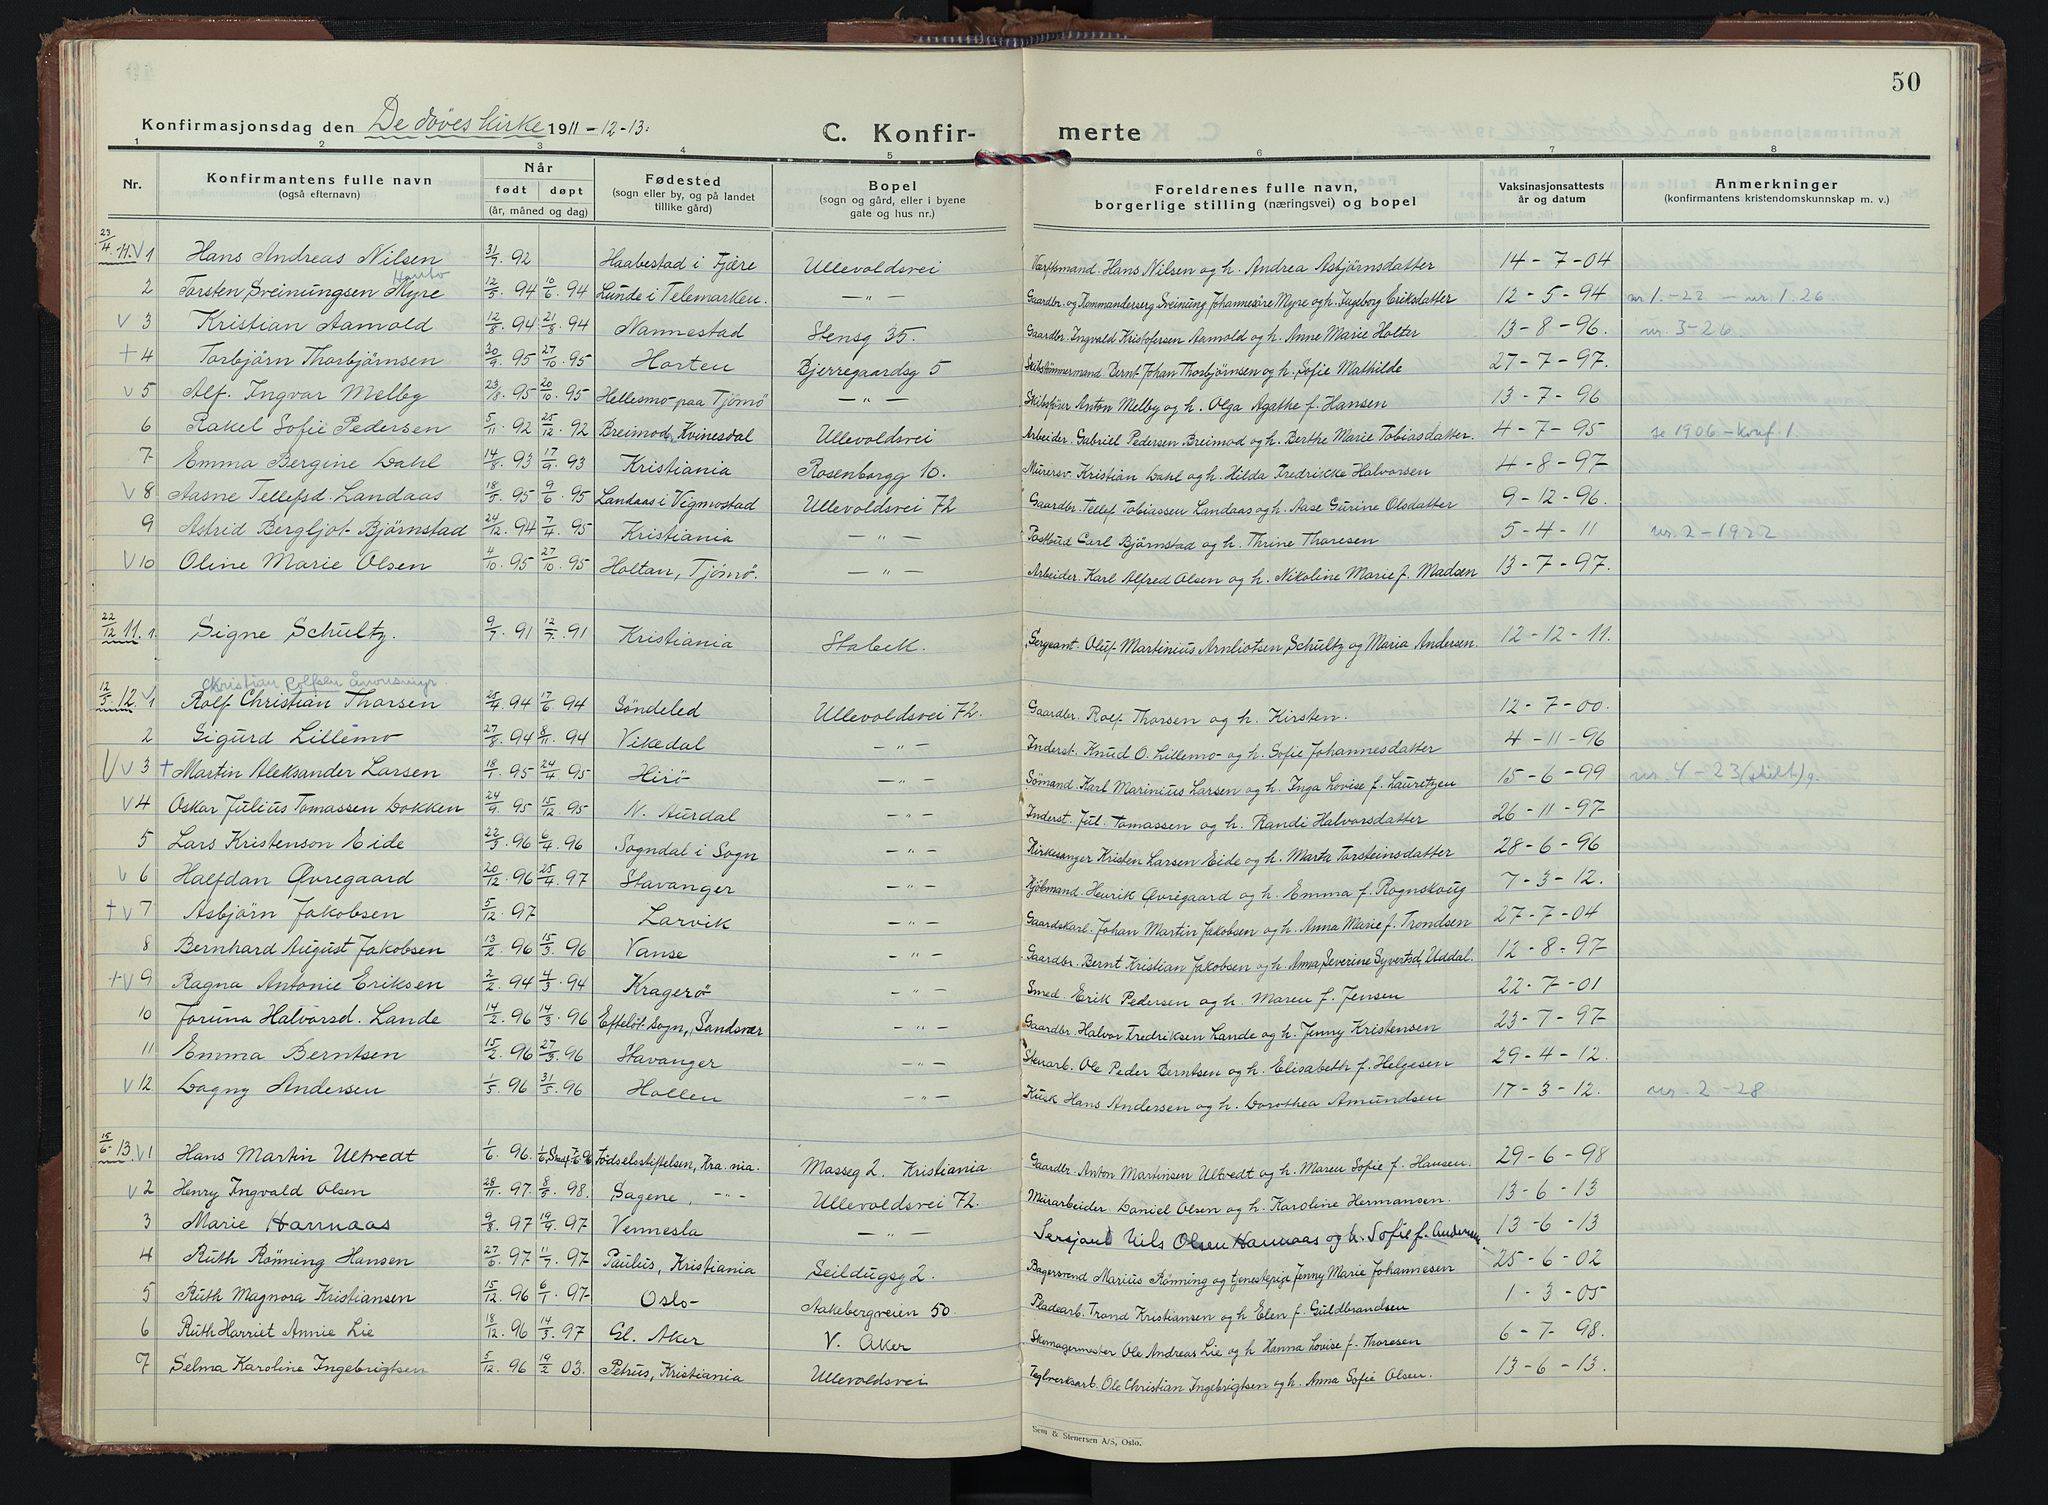 50
Konfirmasjonsdag den De døves kirke 1911-12-13.
C. Konfir- merte
1 2 3 4 5 6 7 8
Nr. Konfirmantens fulle navn (også efternavn) Når født døpt (år, måned og dag) Fødested (sogn eller by, og på landet tillike gård) Bopel (sogn og gård, eller i byene gate og hus nr.) Foreldrenes fulle navn, borgerlige stilling (næringsvei) og bopel Vaksinasjonsattests år og datum Anmerkninger (konfirmantens kristendomskunnskap m. v.)
23/4 11. V 1 Hans Andreas Nilsen 31/7 92 Haabestad i Fjære Ullevoldsvei Værftsmand Hans Nilsen og h. Andrea Asbjörnsdatter 14-7-04
2 Torsten Sveinungsen Myre 12/5 94 10/6 94 Lunde i Telemarken. -"- Gaardbr. og Kommanderserg Sveinung Johannesöre Myre og h. Ingeborg Eriksdatter 12-5-94 nr. 1.-22. - nr. 1.26.
V 3 Kristian Aamold 12/8 94 21/8 94 Nannestad Stensg 35. Gaardbr. Ingvald Kristofersen Aamold og h. Anne Marie Holter 13-8-96. nr. 3-26.
+ 4 Torbjörn Thorbjörnsen 30/9 95 27/10 95 Horten Bjerregaardsg 5 Skibstömmermand Bernt Johan Thorbjörnsen og h. Sofie Mathilde 27-7-97.
V 5 Alf. Ingvar Melby 23/8 95 20/10 95 Hellesmo paa Tjömö -"- Skibsförer Anton Melby og h. Olga Agathe f. Hansen 13-7-96
6 Rakel Sofie Pedersen 5/11 92 25/12 92 Breimod, Kvinesdal Ullevoldsvei Arbeider. Gabriel Pedersen Breimod og h. Berthe Marie Tobiasdatter. 4-7-95 se 1906-konf. 1.
7 Emma Bergine Dahl 14/8 93 17/9 93 Kristiania Rosenborgg 10. Murersv. Kristian Dahl og h. Hilda Fredrikke Halvorsen 4-8-97
V 8 Aasne Tellefsd. Landaas 18/5 95 9/6 95 Landaas i Vigmostad Ullevoldsvei 72 Gaardbr. Tellef Tobiassen Landaas og h. Aase Gurine Olsdatter 9-12-96.
9 Astrid Bergljot Björnstad 24/12 94 7/4 95 Kristiania -"- Postbud Carl Björnstad og h. Thrine Thoresen 5-4-11 nr. 2-1922
V 10 Oline Marie Olsen 4/10 95 27/10 95 Holtan, Tjömö. -"- Arbeider. Karl Alfred Olsen og h. Nikoline Marie f. Madsen 13-7-97.
22/12 11. 1 Signe Schultz. 9/7 91 12/7 91 Kristiania Stabek. Sergeant. Oluf Martinius Arnliotsen Schultz og Maria Andersen. 12-12-11.
12/5 12. V 1 Rolf Christian Thorsen 25/4 94 17/6 94 Söndeled Ullevoldsvei 72. Gaardbr. Rolf Thorsen og h. Kirsten. 12-7-00.
2 Sigurd Lillemo 27/8 94 8/11 94 Vikedal -"- Inderst. Knud O. Lillemo og h. Sofie Johannesdatter 4-11-96
V V 3 + Martin Aleksander Larsen 18/1 95 24/4 95 Hirö -"- Sömand. Karl Marinius Larsen og h. Inga Lovise f. Lauretzen 15-6-99 nr. 4-23 (skilt) g.
V 4 Oskar Julius Tomassen Dokken 24/9 95 15/12 95 N. Aurdal -"- Inderst. Jul. Tomassen og h. Randi Halvorsdatter 26-11-97
5 Lars Kristenson Eide 22/3 96 6/4 96 Sogndal i Sogn -"- Kirkesanger Kristen Larsen Eide og h. Marta Torsteinsdatter 28-6-96
V 6 Halfdan Øvregaard 20/12 96 25/4 97 Stavanger -"- Kjöbmand. Henrik Øvregaard og h. Emma f. Rognskoug 7-3-12.
+ V 7 Asbjörn Jakobsen 5/12 97 Larvik -"- Gaardskarl. Johan Martin Jakobsen og h. Anna Marie f. Trondsen 27-7-04
8 Bernhard August Jakobsen 13/2 96 15/3 96 Vanse -"- Gaardbr. Bernt Kristian Jakobsen og h. Anna Severine Syvertsd, Uddal. 12-8-97
+ V 9 Ragna Antonie Eriksen 2/2 94 4/3 94 Kragerö -"- Smed. Erik Pedersen og h. Maren f. Jensen 22-7-01
10 Joruna Halvorsd. Lande 14/2 96 14/3 96 Efteløt. Sogn, Sandsvær -"- Gaardbr. Halvor Fredriksen Lande og h. Jenny Kristensen 23-7-97
11 Emma Berntsen 15/2 96 27/3 96 Stavanger -"- Stenarb. Ole Peder Berntsen og h. Elisabeth f. Helgesen 29-4-12.
V 12 Dagny Andersen 1/5 96 31/5 96 Hollen -"- Kusk Hans Andersen og h. Dorothea Amundsen 17-3-12. nr. 2-28
15/6 13. V 1 Hans Martin Ultvedt 1/6 96. Födselsstiftelsen, Kra.nia. Masseg 2. Kristiania Gaardbr. Anton Martinsen Ultvedt og h. Maren Sofie f. Hansen. 29-6-98
V 2 Henry Ingvald Olsen 28/11 97. 8/5 98. Sagene, -"- Ullevoldsvei 72. Murarbeider Daniel Olsen og h. Karoline Hermansen. 13-6-13
3 Marie Hannaas 9/8 97 19/9 97 Vennesla -"- Sersjant Nils Olsen Hannaas og h. Sofie f. Andersen 13-6-13
4 Ruth Rønning Hansen 27/6 97 11/7 97 Paulus, Kristiania Seildugsg 2. Bagersvend Marius Rønning og tjenestepige Jenny Marie Johannesen 25-6-02
5 Ruth Magnora Kristiansen 15/12 96 6/1 97 Oslo Aakebergveien 50. Pladearb. Trond Kristiansen og h Elen f. Guldbrandsen 1-3-05
6 Ruth Harriet Annie Lie 18/12 96 14/3 97 Gl. Aker V. Aker Skomagermester Ole Andreas Lie og h Hanna Lovise f. Thoresen 6-7-98.
7 Selma Karoline Ingebrigtsen 5/12 96 19/2 03. Petrus, Kristiania Ullevoldsvei Teglverksarb. Ole Christian Ingebrigtsen og h. Anna Sofie Olsen. 13-6-13.
Sem & Stenersen A/S, Oslo.